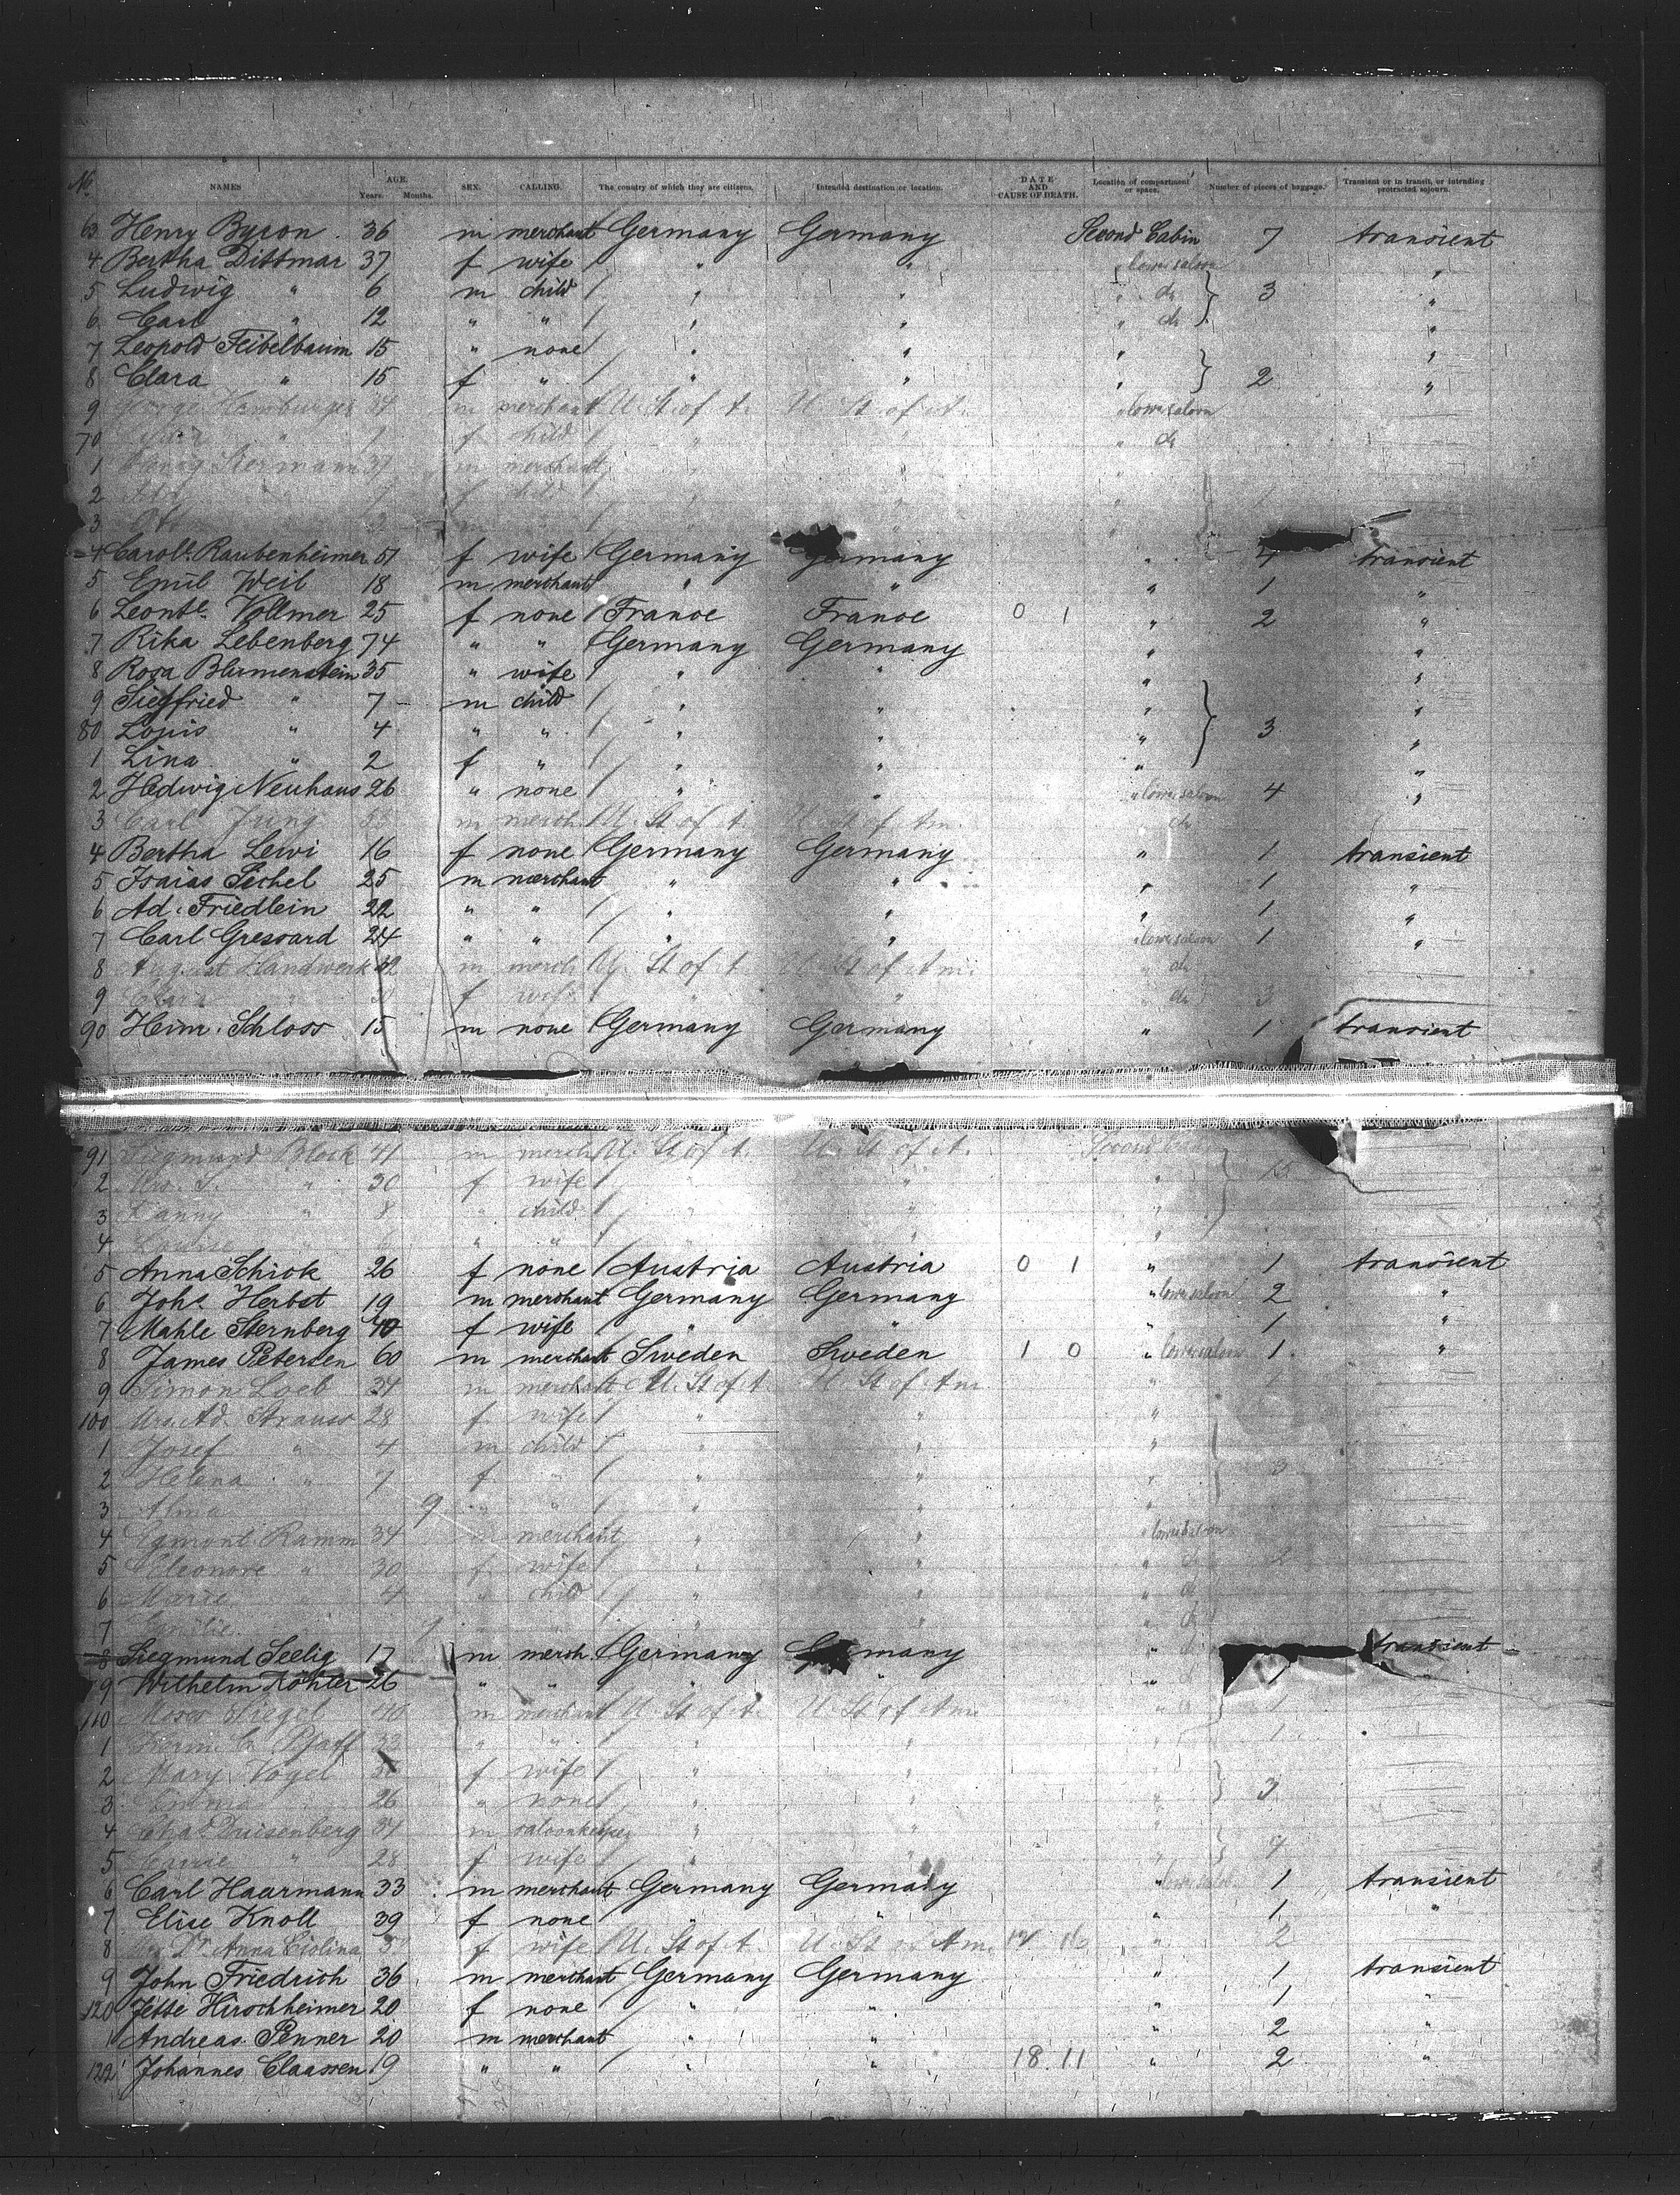 No NAMES AGE. Years. Months. SEX. CALLING. The country of which they are citizens. Intended destination or location. DATE AND CAUSE OF DEATH. Location of compartment or space. Number of pieces of baggage. Transient or in transit, or intending protracted sojourn.
63 Henry Byron 36 m merchant Germany Germany Second Cabin 7 transient
4 Bertha Dittmar 37 f wife " " lower saloon "
5 Ludwig " 6 m child " " " do 3 "
6 Carl " 12 " " " " " do "
7 Leopold Feibelbaum 15 " none " " " "
8 Clara " 15 f " " " " 2 "
9 Hamburger 34 m merchant U. St. of A. U. St. of A. " lower saloon
70 " f child " " do
1 37 m merchant
2 f child
3 m
4 Carol. Raubenheimer 51 f wife Germany Germany " 4 transient
5 Emil Weil 18 m merchant " " " 1 "
6 Leont. Vollmer 25 f none France France 0 1 " 2 "
7 Rika Lebenberg 74 " " Germany Germany " "
8 Rosa Blumenstein 35 " wife " " " "
9 Siegfried " 7 m child " " " "
80 Louis " 4 " " " " " 3 "
1 Lina " 2 f " " " " "
2 Hedwig Neuhaus 26 " none " " " lower saloon 4 "
3 Carl Jung m merch. U. St. of A. U. St. of Am. do
4 Bertha Lewi 16 f none Germany Germany " 1 transient
5 Isaias Sichel 25 m merchant " " " 1 "
6 Ad. Friedlein 22 " " " " " 1 "
7 Carl Gressard 24 " " " " " lower saloon 1 "
8 August Handwerk 32 m merch U. St. of A. U. St. of Am. " do
9 Clara " f wife " " " do 3
90 Heim. Schloss 15 m none Germany Germany " 1 transient
91 Siegmund Block 41 m merch U. St. of A. U. St. of A. Second 15
2 Mrs. S. " 30 f wife " " "
3 Fanny " 8 " child " " "
4 Louise " " " "
5 Anna Schick 26 f none Austria Austria 0 1 " 1 transient
6 Joh. Herbst 19 m merchant Germany Germany " lower saloon 2 "
7 Mahle Sternberg 40 f wife " " " 1 "
8 James Petersen 60 m merchant Sweden Sweden 1 0 " lower saloon 1 "
9 Simon Loeb 34 m merchant U. St. of A. U. St. of Am. " 1
100 Mrs. Ad. Strauss 28 f wife " " "
1 Josef " 4 m child " " "
2 Helena " 7 f " " " " 3
3 Alma 9 " " " " "
4 Egmont Ramm 34 m merchant " " " lower saloon
5 Eleonore " 30 f wife " " " do
6 Marie " 4 " child " " " do
7 Emilie " " " do
8 Siegmund Seelig 17 m merch. Germany Germany " do transient
9 Wilhelm Köhler 26 " " " " " do 1
110 Moses Siegel 40 m merchant U. St. of A. U. St. of Am. " do 1
1 Pfaff 33 " " " " 1
2 Mary Vogel f wife " " "
3 Emma 26 " none " " " 3
4 Chas. Duisenberg 34 m saloonkeeper " " "
5 Carrie " 28 f wife " "
6 Carl Haarmann 33 m merchant Germany Germany " lower saloon 1 transient
7 Elise Knoll 39 f none " " " 1 "
8 Mrs. Dr. Anna Ciolina f wife U. St. of A. U. St. of Am. " 2
9 John Friedrich 36 m merchant Germany Germany " 1 transient
120 Jette Hirschheimer 20 f none " " " 1 "
1 Andreas Penner 20 m merchant " " " 2 "
122 Johannes Claassen 19 " " " " 18 11 " 2 "